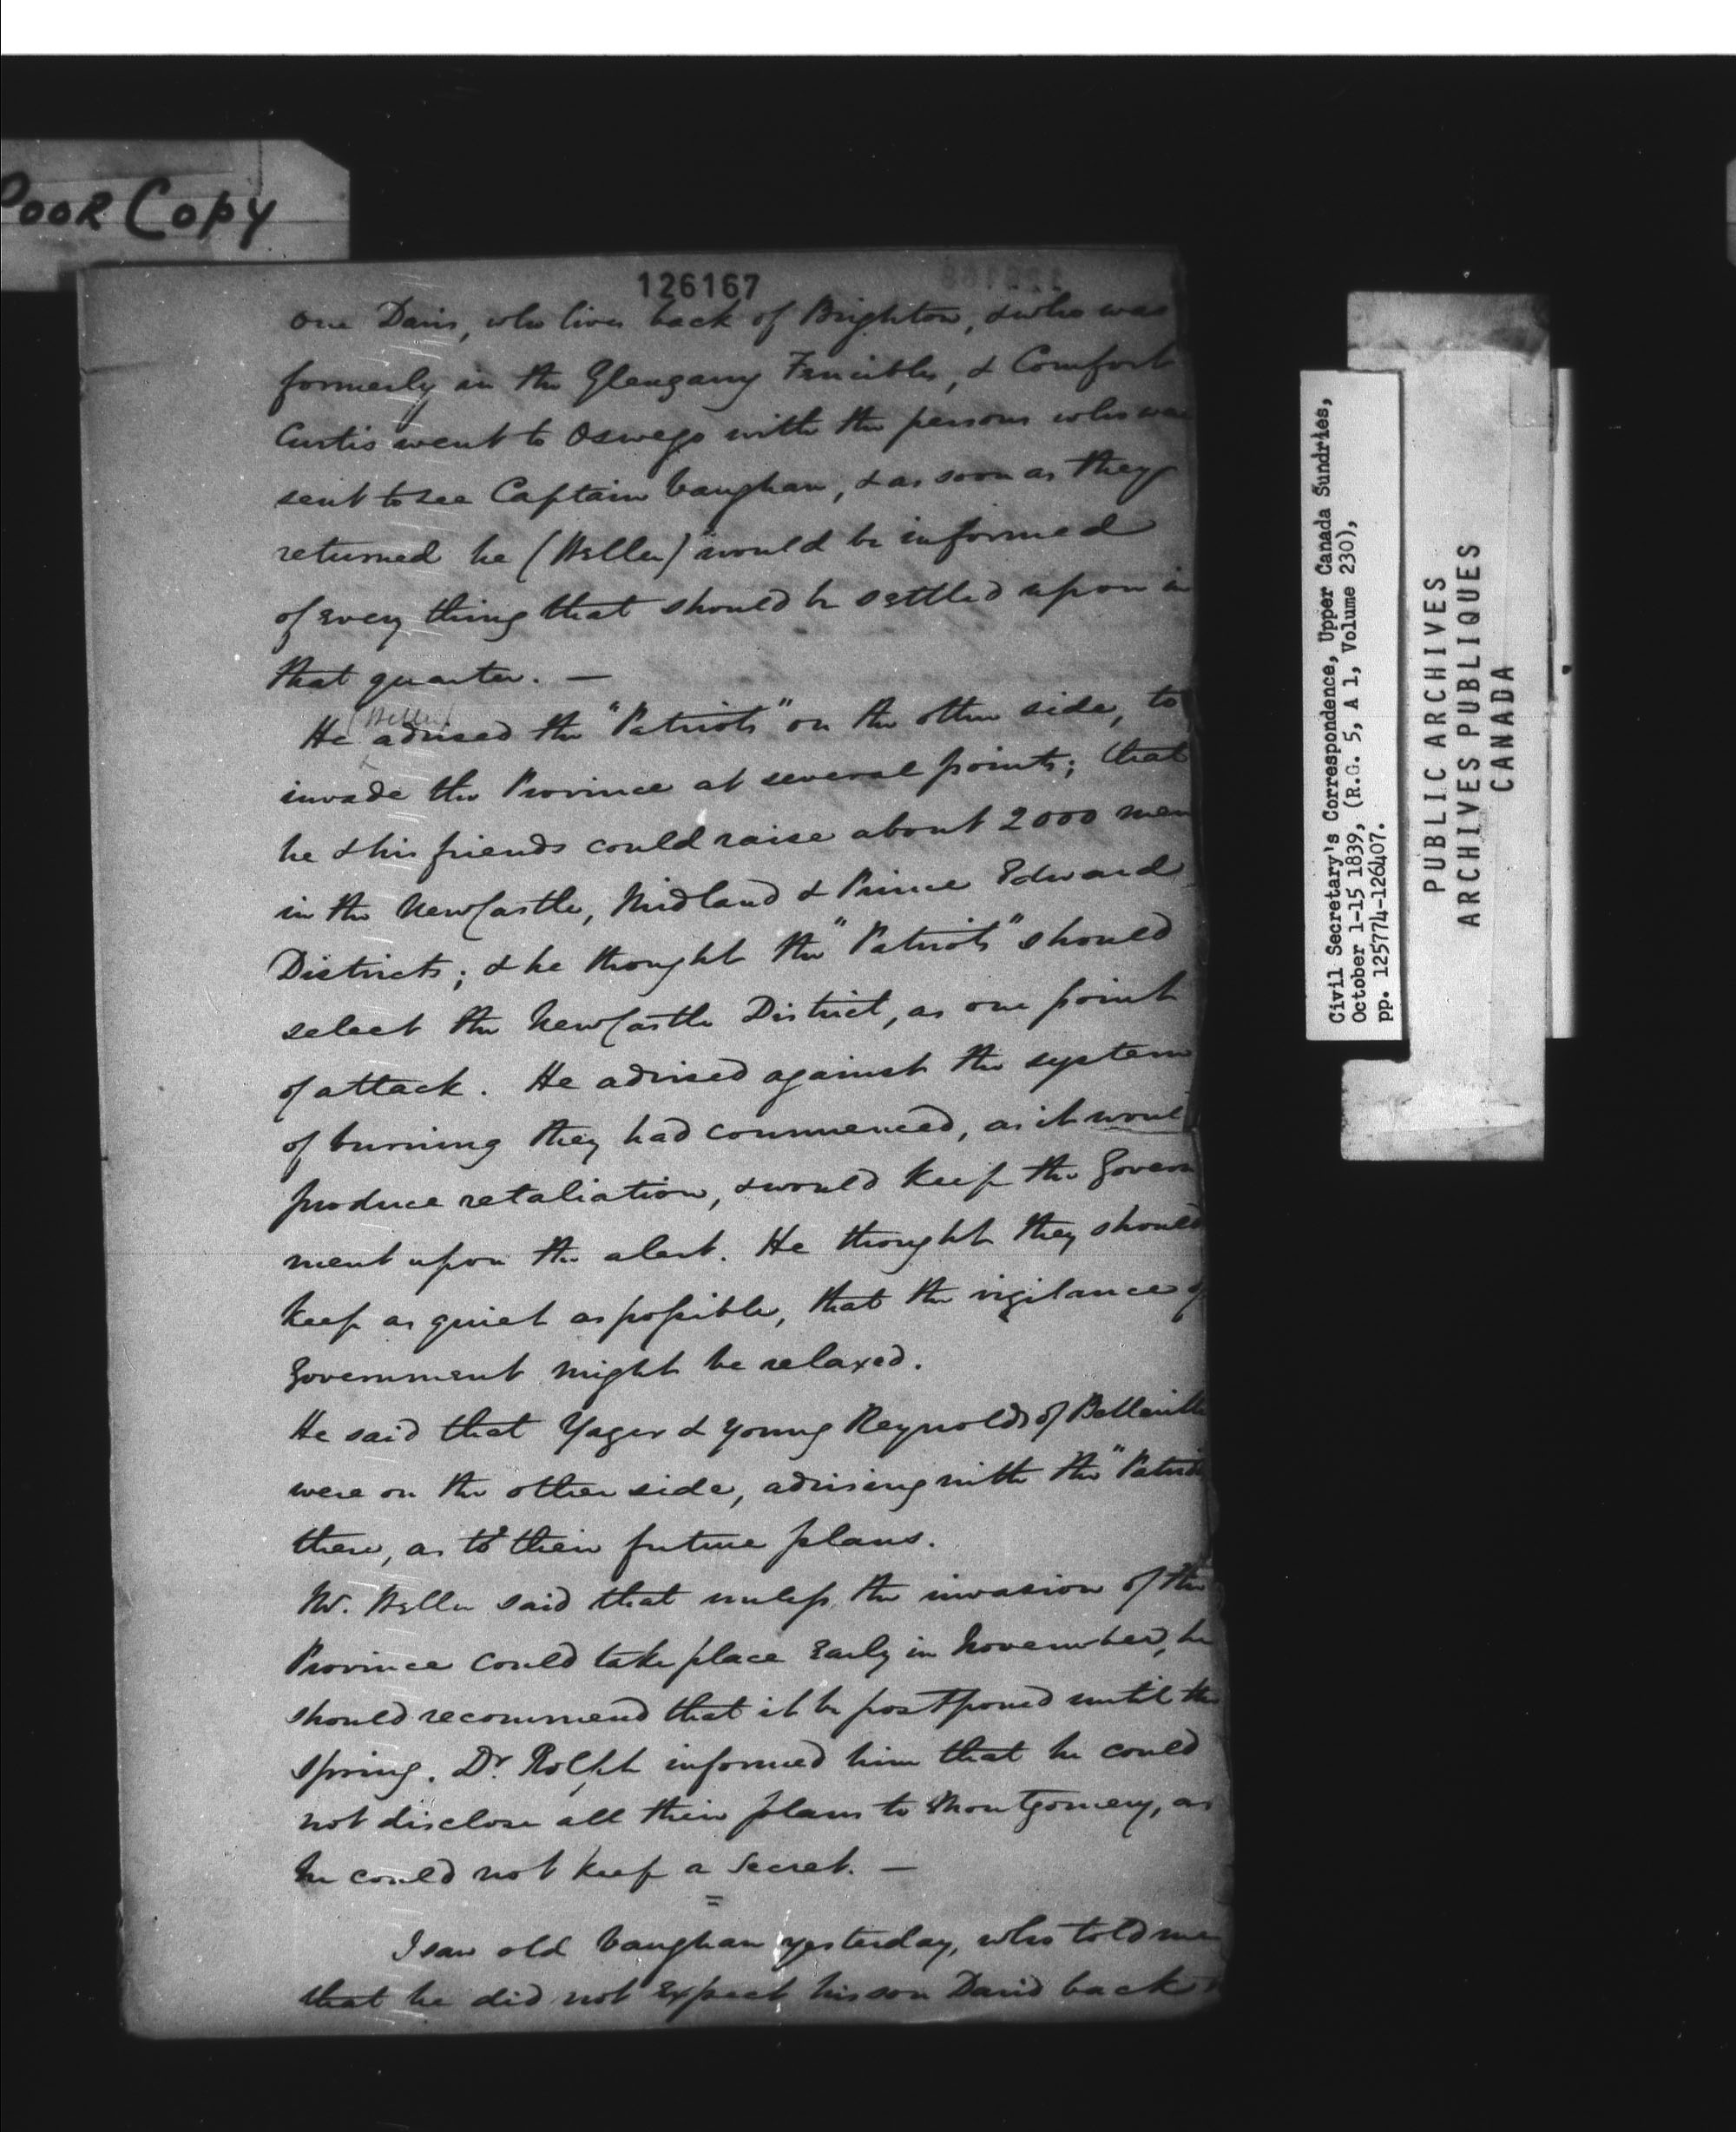 Poor Copy
126167
one Davis, who lives back of Brighton, & who was
formerly in the Glengarry Fencibles, & Comfort
Curtis went to Oswego with the persons who was
sent to see Captain Vaughan, & as soon as they
returned he (Weller) would be informed
of every thing that should be settled upon in
that quarter. —
(Weller)
He advised the "Patriots" on the other side, to
invade the Province at several points; that
he & his friends could raise about 2000 men
in the NewCastle, Midland & Prince Edward
Districts; & he thought the "Patriots" should
select the NewCastle District, as one point
of attack. He advised against the system
of burning they had commenced, as it woul
produce retaliation, & would keep the Govern
ment upon the alert. He thought they should
keep as quiet as possible, that the vigilance of
Government might be relaxed.
He said that Yager & young Reynolds of Belleville
were on the other side, advising with the "Patriots
there, as to their future plans.
Mr. Weller said that unless the invasion of the
Province could take place early in November, he
should recommend that it be postponed until the
spring. Dr. Rolph informed him that he could
not disclose all their plans to Montgomery, as
he could not keep a secret. —
I saw old Vaughan yesterday, who told me
that he did not expect his son David back
Civil Secretary's Correspondence, Upper Canada Sundries,
October 1-15 1839, (R.G. 5, A 1, Volume 230),
pp. 125774-126407.
PUBLIC ARCHIVES
ARCHIVES PUBLIQUES
CANADA